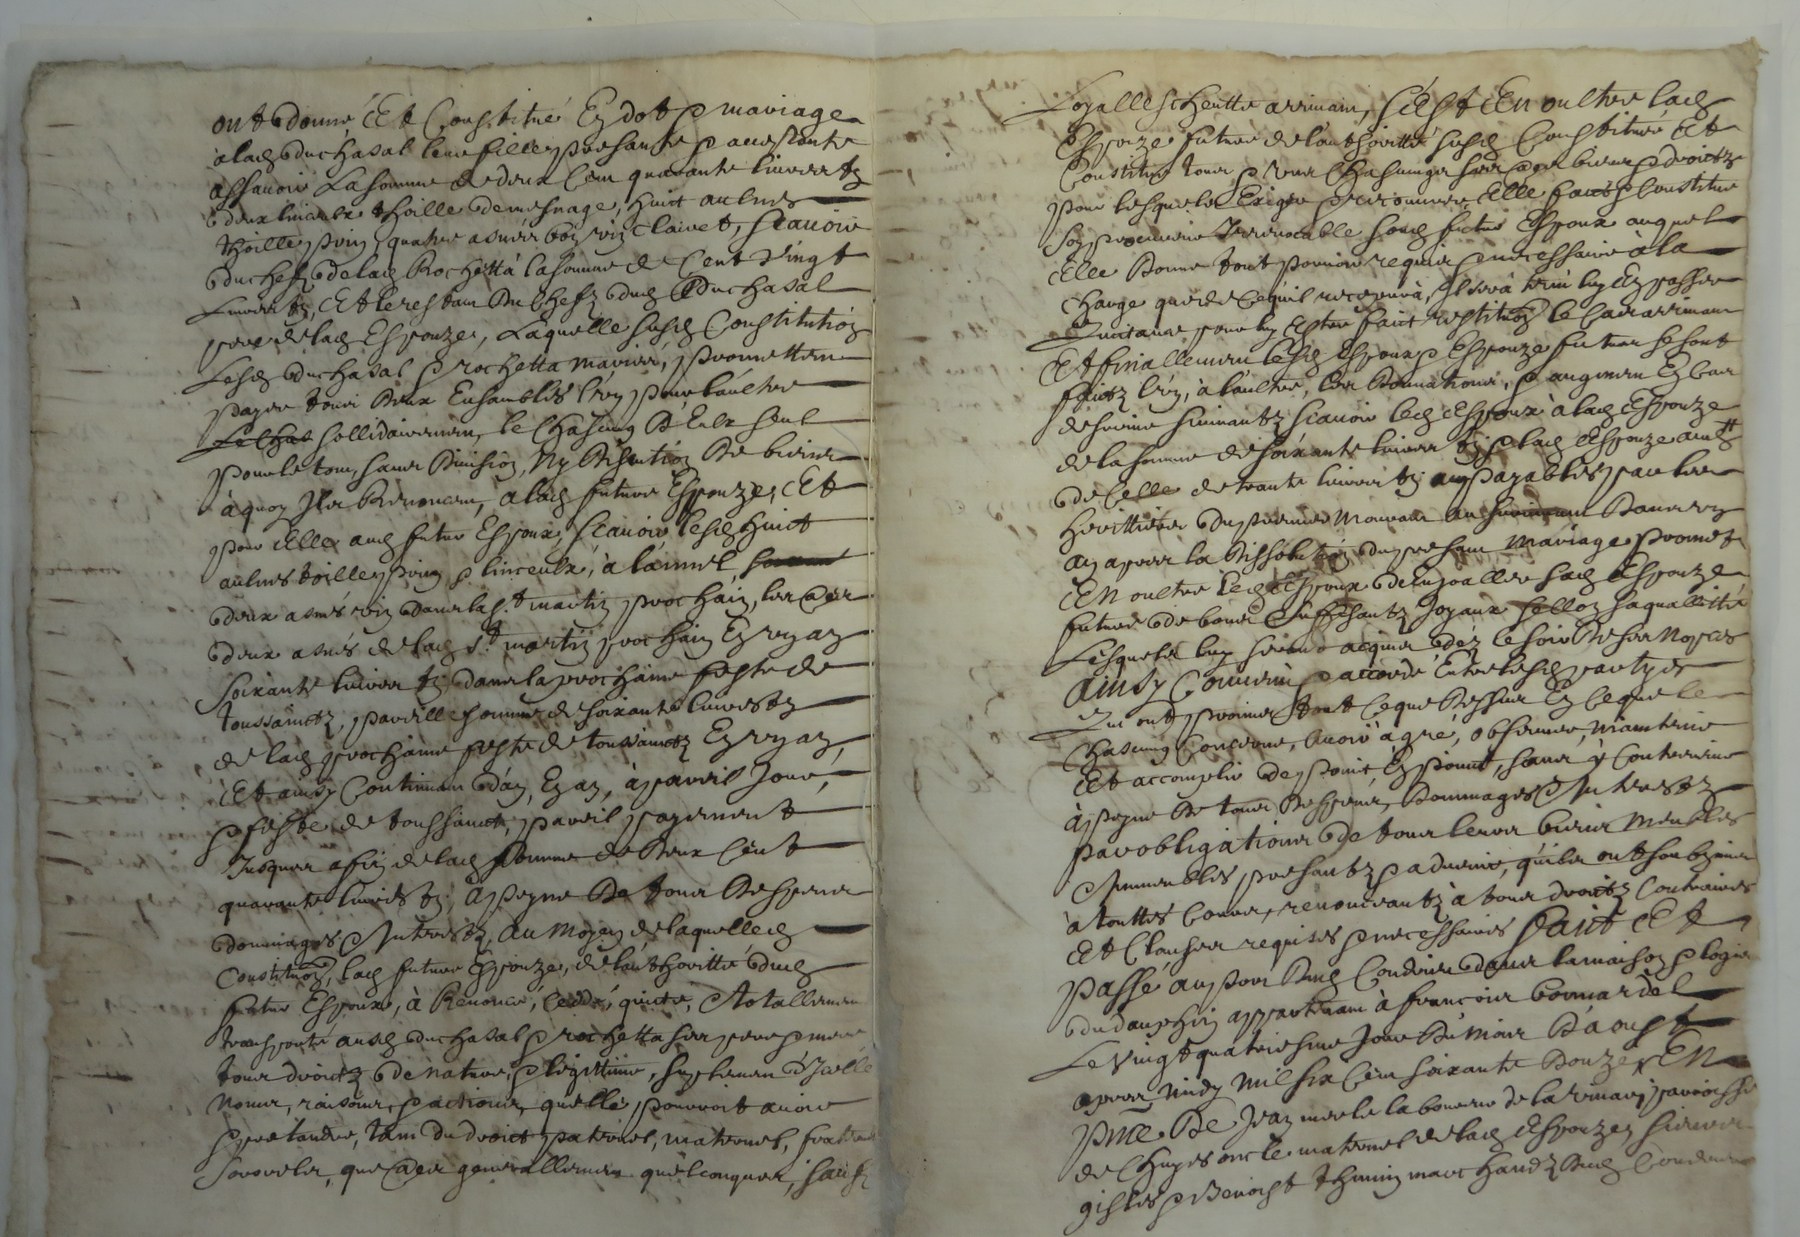 ont donné Et Constitué En dot p mariage
a lad duchasal leur fille presante p acceptante
assauoir La somme de deux Cens quarante liures tz
deux linceulx thoille de mesnage, huict aulnes
thoille prin, quatre asnées bon vin clairet, scauoir
du chefz de lad Rochetta la somme de Cent Vingt
Liures tz, Et le restant du Chefz dud Duchasal
pere de lad Espouze, Laquelle susd Constitution
Lesd duchasal p rochetta mariés, promettent
payer tous deux Ensembles l'vn pour l'aultre
sollidairement, le Chascung d'Eulx seul
pour le tout, sans Diuision, Ny Discution De biens
à quoy Ils Renoncent, a lad future Espouze, Et
pour Elle aud futur Espoux, scauoir lesd huict
aulnes toille prin p linceulx, à l'aduenir
deux asnés vin dans la St martin prochain, les aultres
deux asnés de lad St martin prochain En vn an
soixante liures tz dans la prochaine feste de
toussainctz, pareille somme de soixante liures tz
de lad prochaine feste de toussainctz En vn an,
Et ainsy Continuant d'an, En an, à pareil Jour,
p feste de toussainct, pareil payement
Jusques a fin de lad somme de Deux Cent
quarante liures tz, A peyne De tous Despens
dommages p Interestz, Au Moyen de laquelle d
Constitution, lad future Espouze, de l'authoritté dud
futur Espoux, à Renoncé, Ceddé, quicté, p totallement
transporté ausd duchasal p rochetta ses pere p mere
tous droictz de nature, p légittime, suplement d'Icelle
Noms, raisons, p actions, quelle, pourroit auoir
p pretandre, tant du droict paternel, maternel, fraternel
sororeler, que aultres generallement quelconques, sauf
Loyalle p heutte aduenant, Et En oultre lad
Espouze future de l'authoritté susd Constitué Et
Constitue tous, p vns Chascungs ses aultres biens p droictz
pour lesquels Exiger p recouurer Elle faict p Constitue
son procureur Irreuocable sond futur Espoux auquel
Elle Donne tout pouuoir requis p necessaire à la
charge que de Ce quil receura, Il sera tenu luy En passer
Quictance pour luy Estre faict restitution le Cas aduenant
Et finallement lesd Espoux p Espouze futurs se sont
faictz l'vn, à l'aultre, les Donnations, p augment En Cas
de suruie suiuantz scauoir led Espoux à lad Espouze
de la somme de soixante liures tz p lad Espouze aud
de Celle de trante liures tz payables par les
herittiers du premier Mourant au suruiuant
an apres la Dissolution du presant Mariage, promet
En oultre led Espoux de Enjoaller sad Espouze
future de bons p suffisantz Joyaux sellon sa quallitté
Lesquels luy seront acquis dez le soir De ses Nopces
Ainsy Conuenu p accordé Entre lesd partyes
Qui ont promis tout Ce que Dessus En Ce que le
Chascung Concerne, Auoir à gré, obseruer, Maintenir
Et accomplir de poinct En poinct, sans y Contreuenir
A peyne De tous Despens, Dommages p Interestz
par obligations de tous leurs biens Meubles
p Immeubles presantz p aduenir, quils ont soubzmis
à touttes Cours, renonceantz à tous droictz Contraires
Et Clauses requises p necessaires Faict Et
Passé au port Dud Condrieu dans la maison p logis
du dauphin appartenant à françois bonnardel
Le Vingt quatriesme Jour Du Mois D'aoust
apres Midy Mil six Cens soixante Douze, EN
pnce De Jean merle laboureur de la parroisse
de Chuyes oncle maternel de lad Espouze, sieurs
gisles p Benoist thiuin marchandz Dud Condrieu